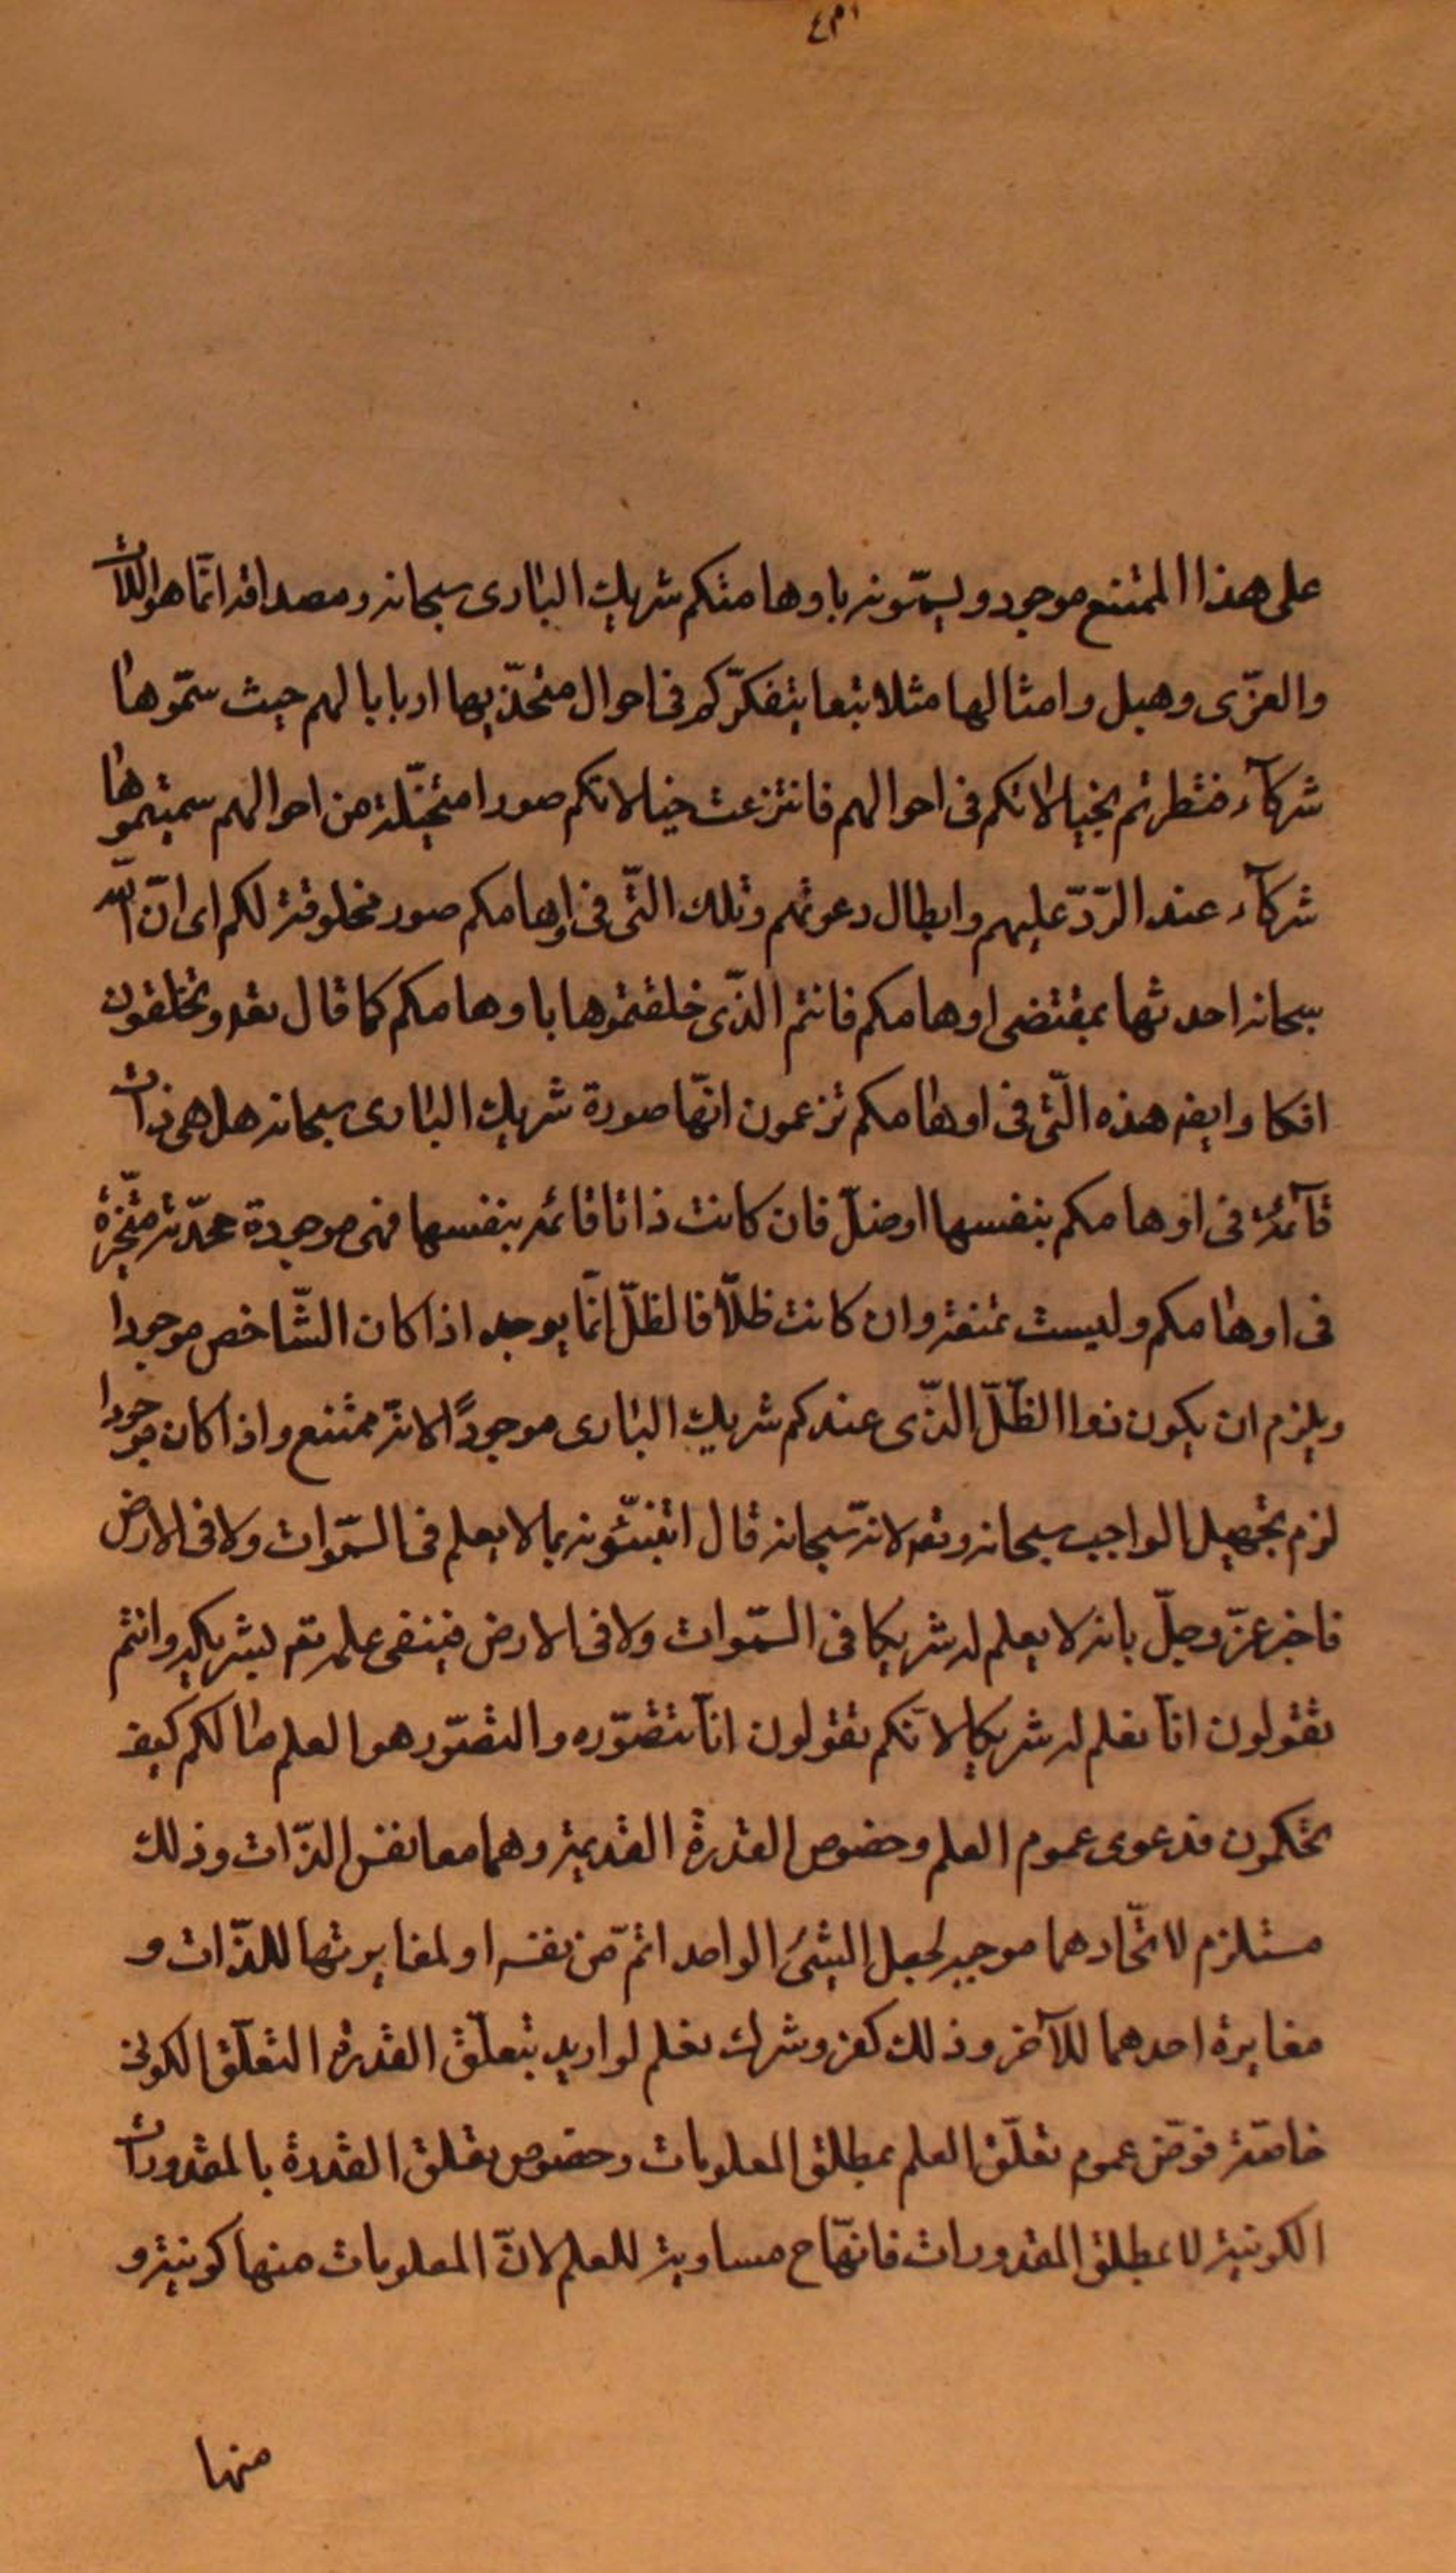 على هذا الممتنع موجود ويسمّونه باوهامتكم شريك البارى سبحانه ومصداقه انّما هو اللات
والعزّى وهبل وامثالها مثلا تبعا بتفكرّكم فى احوال متخذيها اربابا لهم حيث سمّوها
شركآء فنظرتم بخيالاتكم فى احوالهم فانتزعت خيالاتكم صورا متخيّلة من احوالهم سميتموها
شركآء عند الرّدّ عليهم وابطال دعوتهم وتلك التّى فى اوهامكم صور مخلوقة لكم اى انّ اللّه
سبحانه احدثها بمقتضى اوهامكم فانتم الذّى خلقتموها باوهامكم كما قال تعه وتخلقون
افكا وايضه هذه الّتى فى اوهامكم تزعمون انّها صورة شريك البارى سبحانه هل هى ذات
قآئمة فى اوهامكم بنفسها اوضلّ فان كانت ذاتا قائمة بنفسها فهى موجودة محدّثة متخيّرة
فى اوهامكم وليست ممتنعة وان كانت ظلّا فالظلّ انّما يوجد اذا كان الشّاخص موجودا
ويلزم ان يكون ذوا الظّلّ الذّى عندكم شريك البارى موجودًا لا انّه ممتنع واذا كان موجودا
لزم تجهيل الواجب سبحانه وتعه لانّه سبحانه قال اتنبّئونه بما لا يعلم فى السّموات ولا فى الارض
فاخبر عزّ وجلّ بانه لا يعلم له شريكا فى السّموات ولا فى الارض فينفى علمه تعه بشريكه وانتم
تقولون انّا نعلم له شريكا لانّكم تقولون انّا نتصّوره والتصّور هو العلم مالكم كيف
تحكمون فدعوى عموم العلم وخصوص القدرة القديمة وهما معا نفس الذّات وذلك
مستلزم لاتّحادهما موجب لجعل الشئ الواحد اتمّ من نفسه او لمغايرتها للذّات و
مغايرة احدهما للآخر وذلك كفر وشرك نعلم لو اريد بتعلّق القدرة التعلّق الكونى
خاصّة فرض عموم تعلّق العلم بمطلق المعلومات وخصوص تعلق القدرة بالمقدورات
الكونية لا بمطلق المقدورات فانّها ح مساوية للعلم لانّ المعلومات منها كونية و
منها